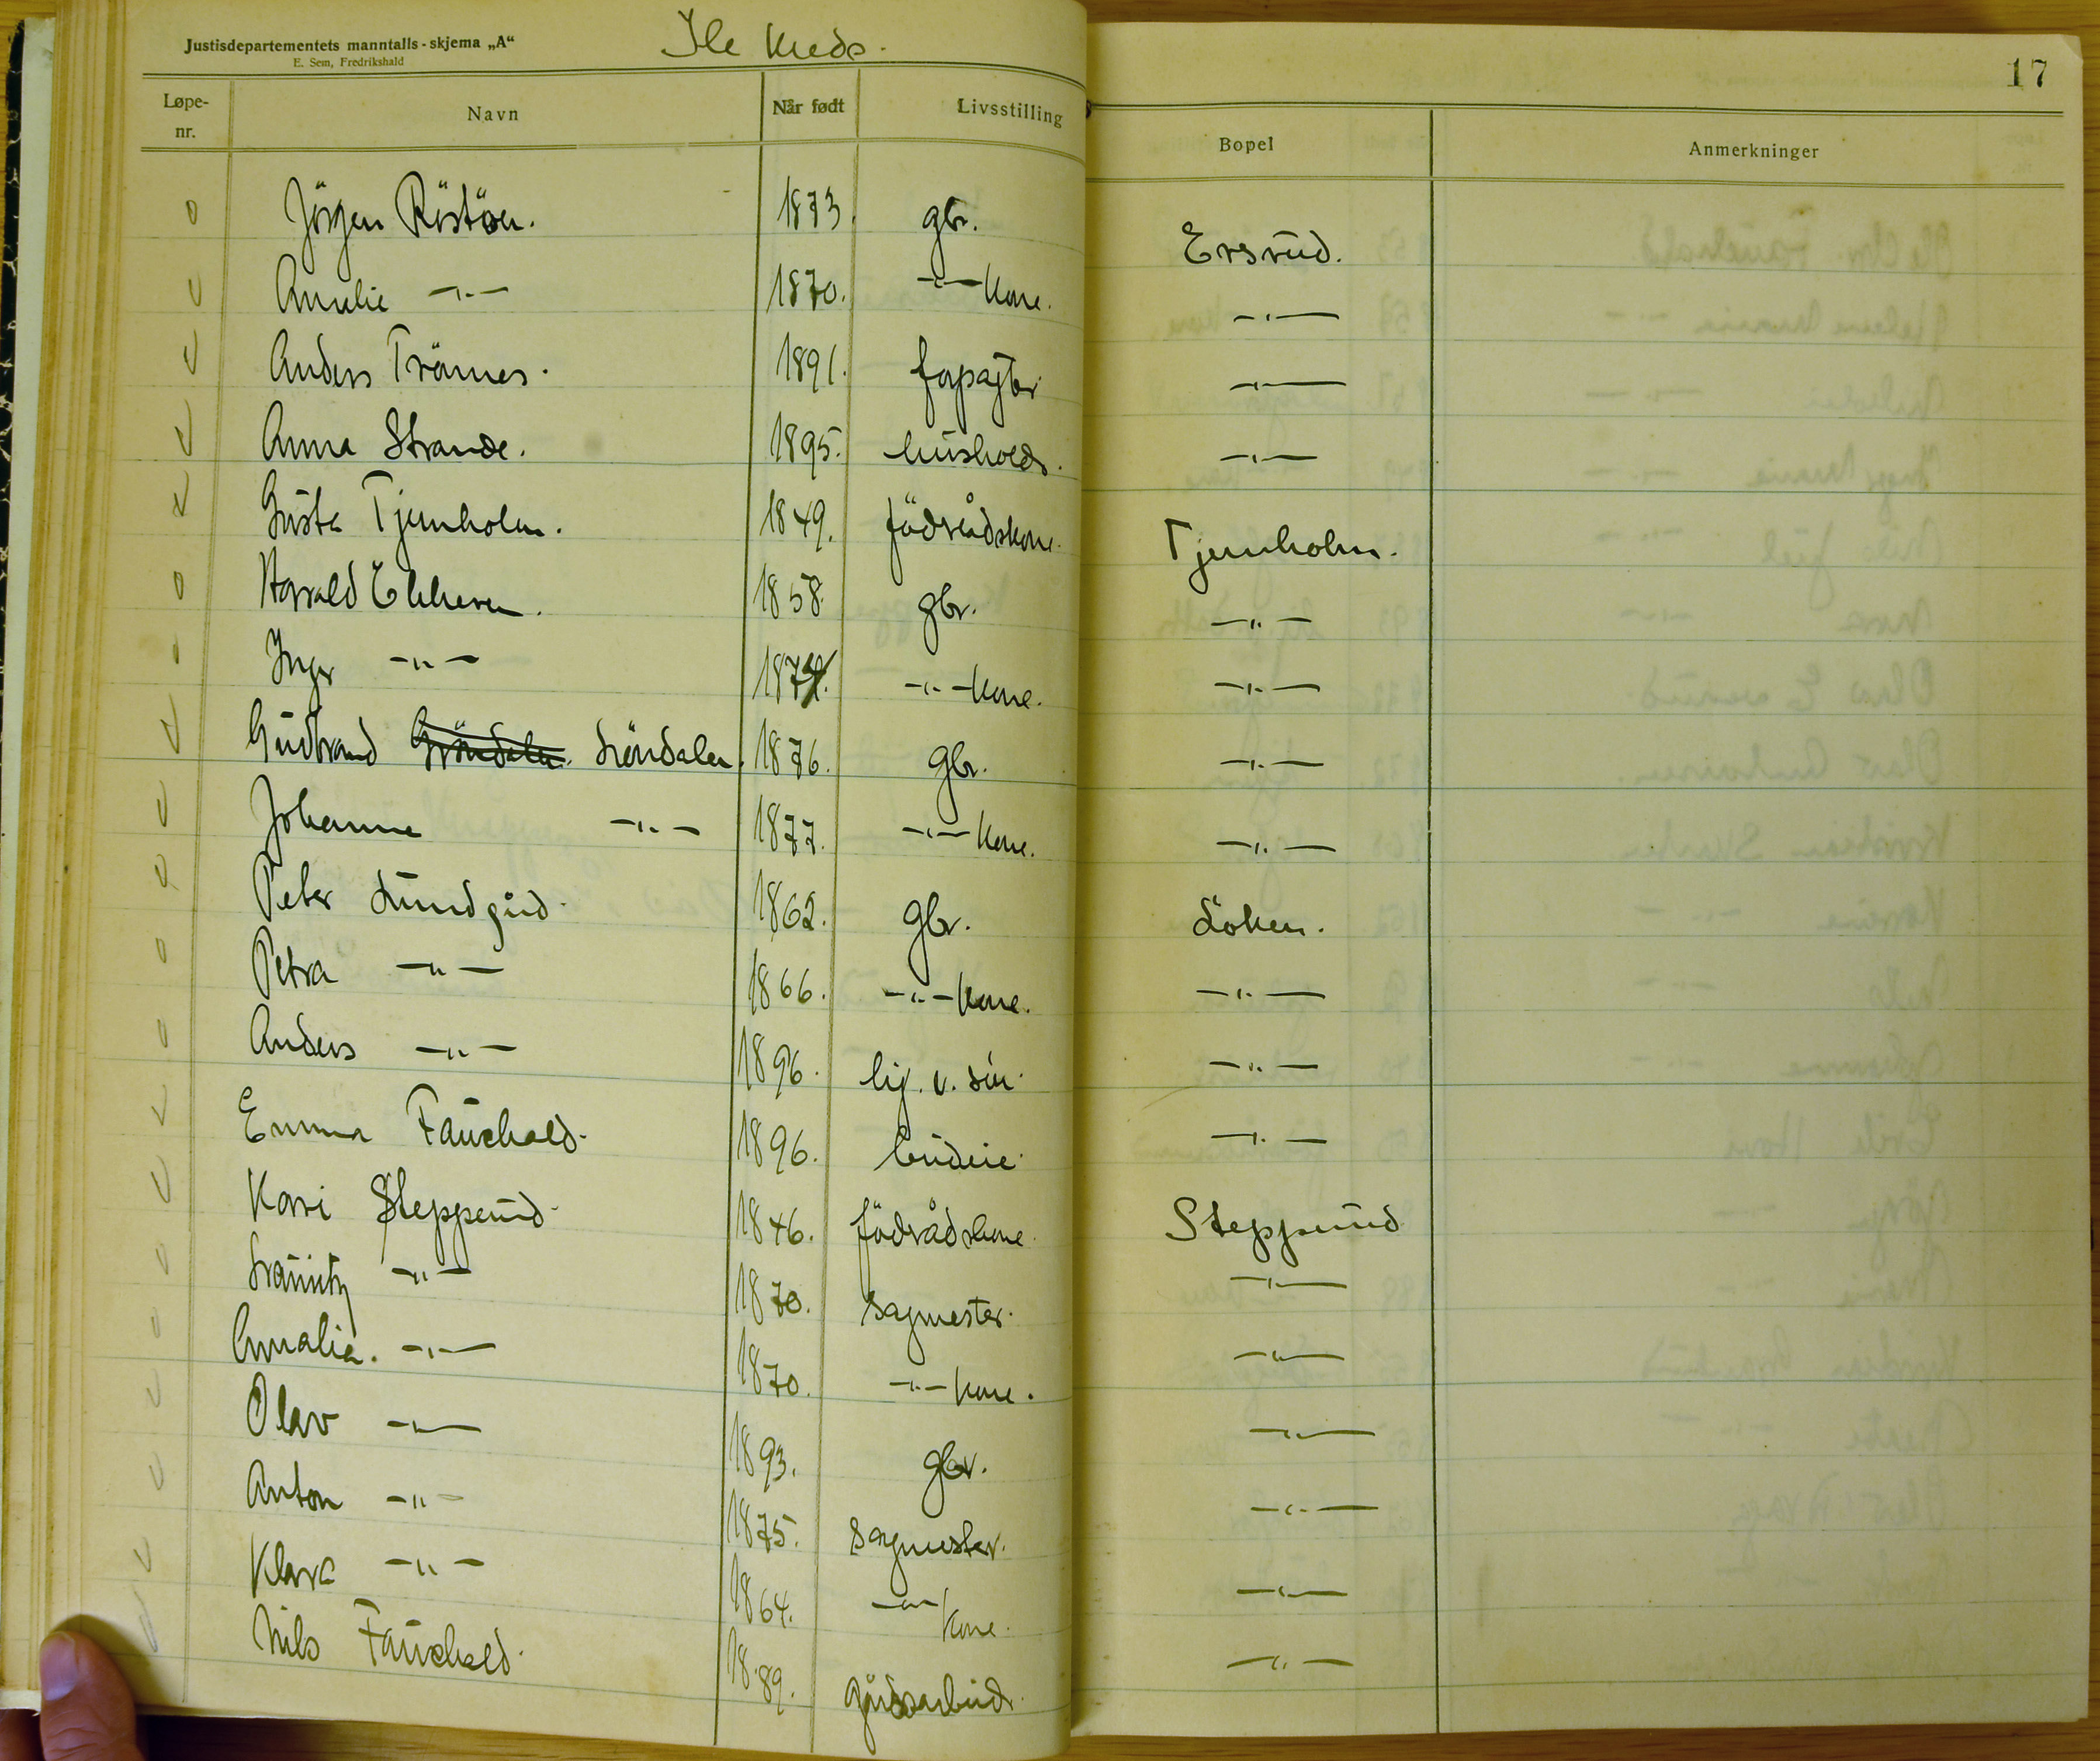 Justisdepartementets manntalls-skjema „A“
E. Sem, Fredrikshald
Ile Kreds.
17
Løpe-nr. Navn Når født Livsstilling Bopel Anmerkninger
Jörgen Röstöen. 1873. gbr. Ersrud.
Amalie -"- 1870. -"- Kone. -"-
Anders Trönnes. 1891. forpagter -"-
Anna Strande. 1895. husholds. -"-
Guste Tjernholm. 1849. födrådskone. Tjernholm.
Harald Ekkeren. 1858. gbr. -"-
Inger -"- 1874. -"- Kone. -"-
Gudbrand Gröndalen. Löndalen. 1876. gbr. -"-
Johanne -"- 1877. -"- Kone. -"-
Peter Lundgård. 1862. gbr. Löken.
Petra -"- 1866. -"- Kone. -"-
Anders -"- 1896. lig. v. sön. -"-
Emma Fauchald. 1896. budeie. -"-
Kari Stepperud. 1846. födrådskone. Stepperud
-"- 1870. sagmester. -"-
Amalie. -"- 1870. -"- Kone. -"-
Olav -"- 1893. gbr. -"-
Anton -"- 1875. sagmester. -"-
Klara -"- 1864. -"- Kone. -"-
Nils Fauchald. 1889. gårdsarbeid. -"-